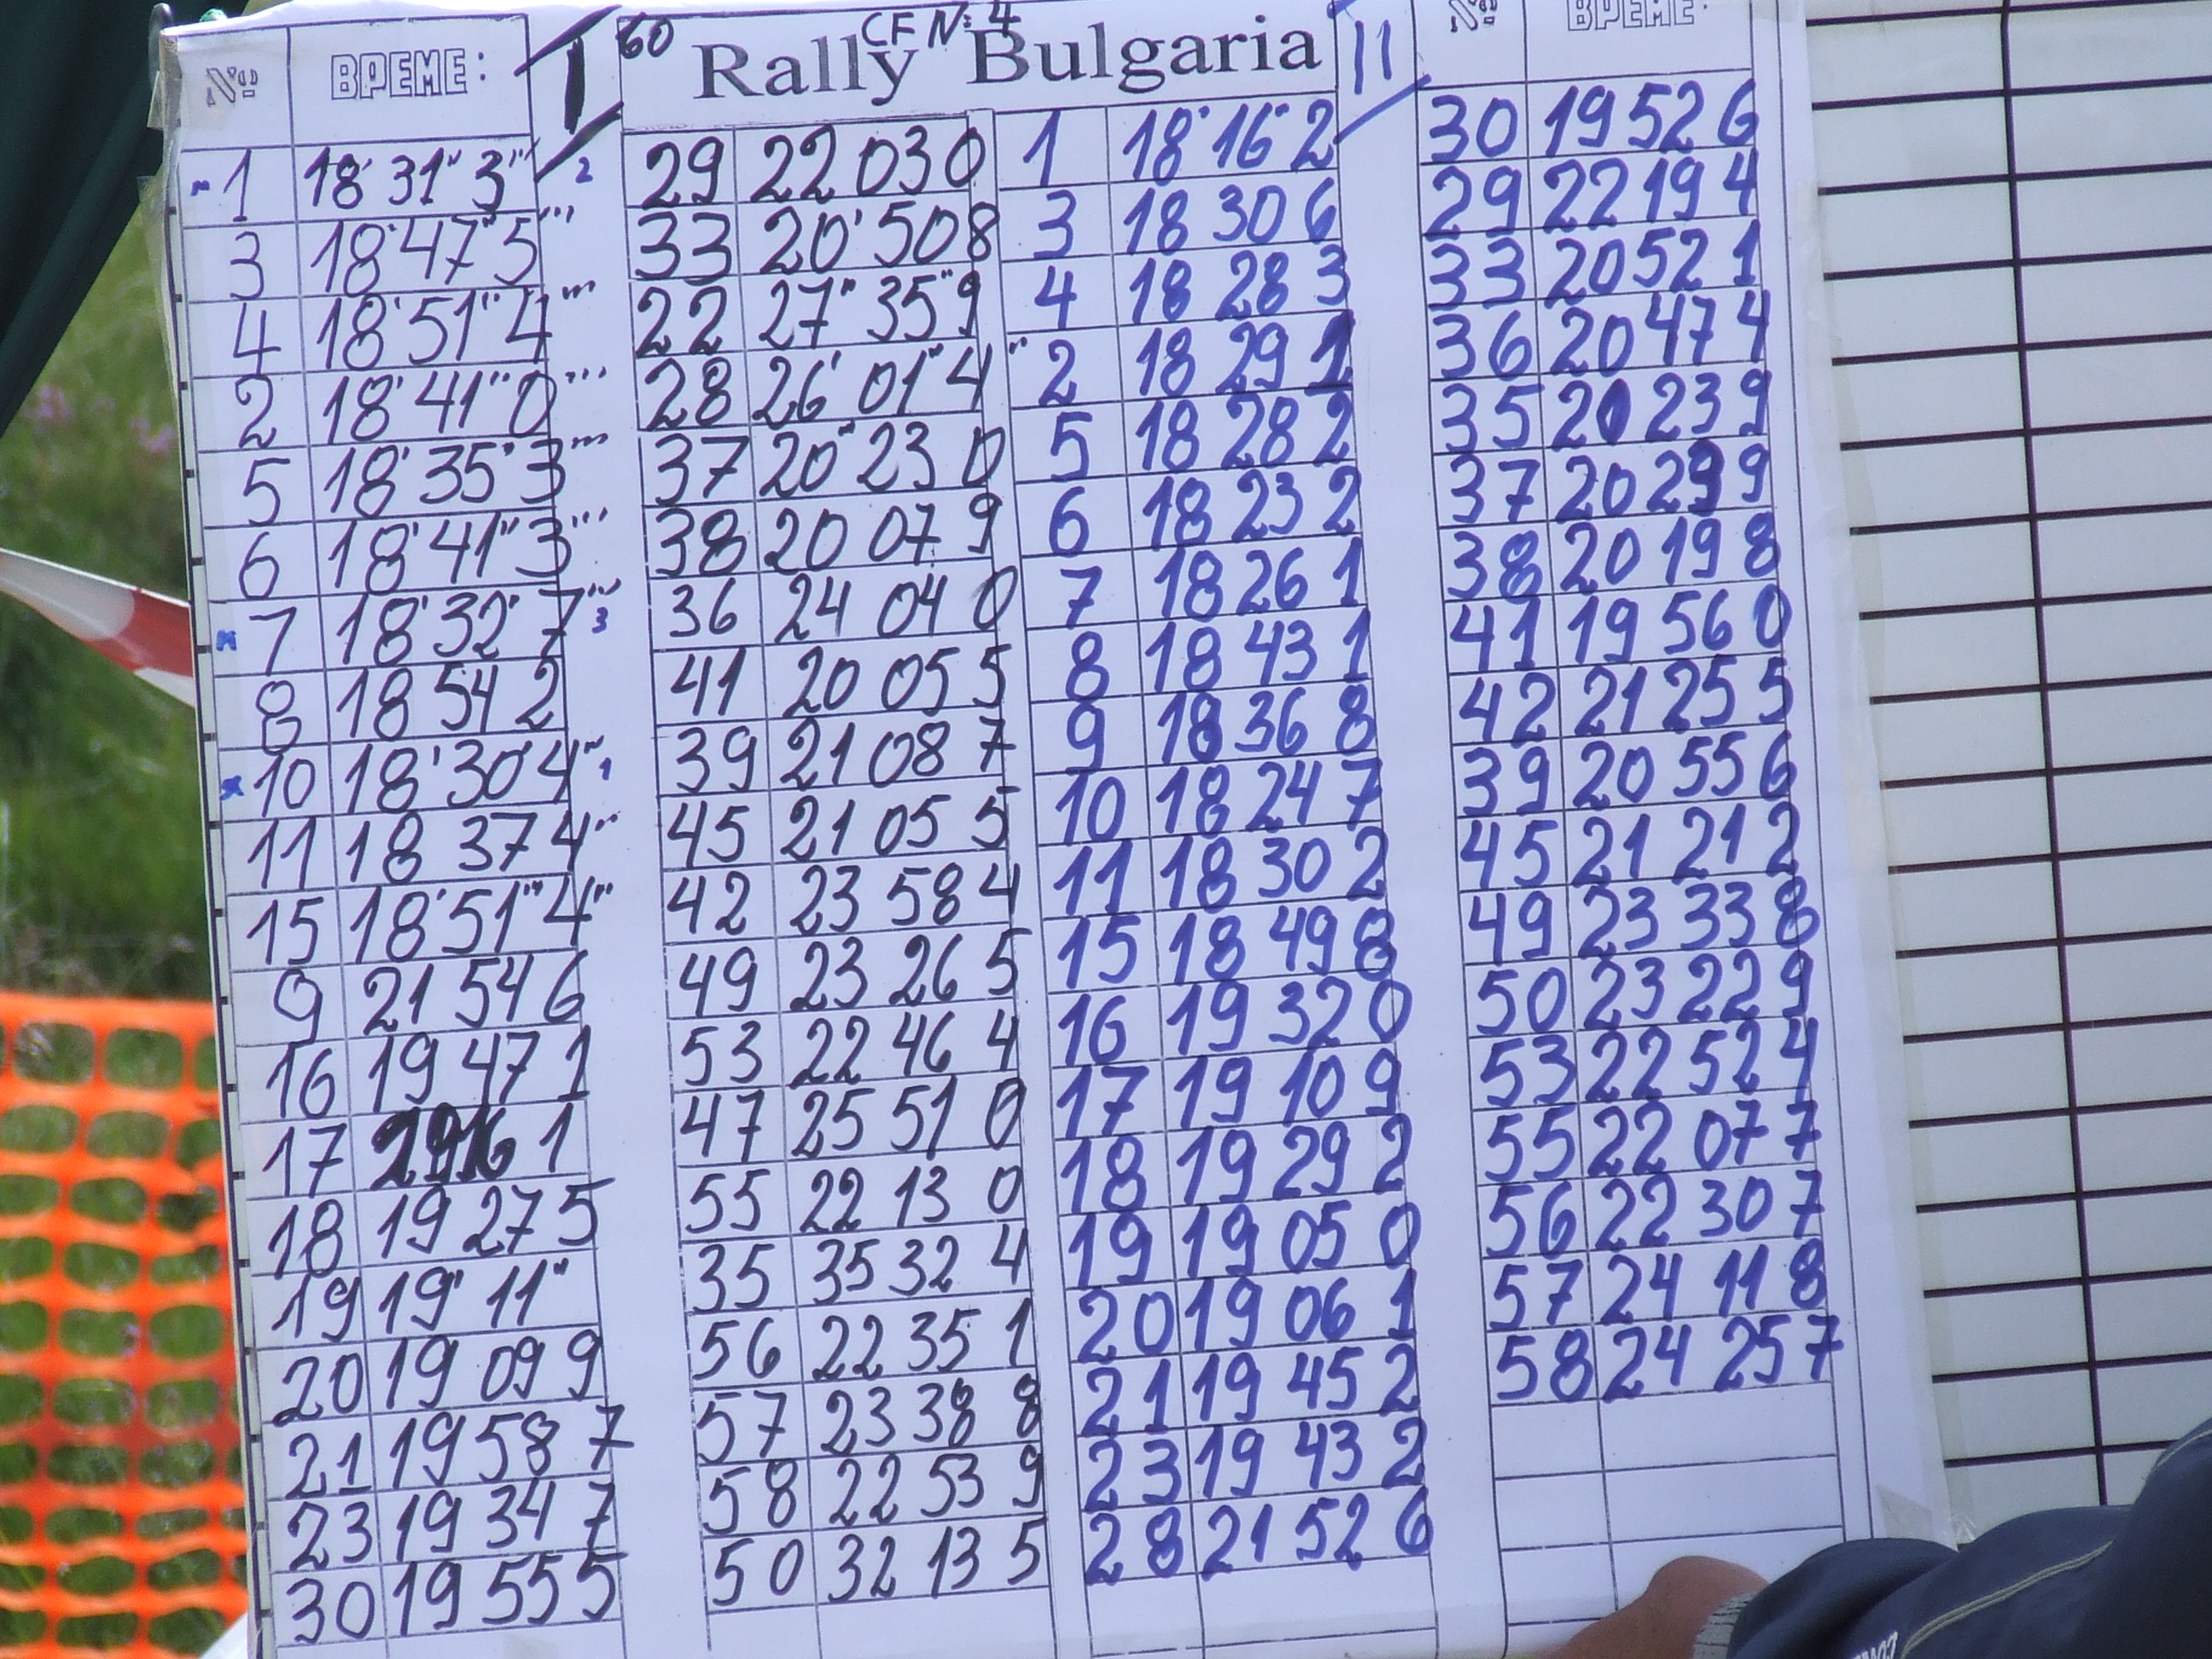 № ВРЕМЕ: I 60 CF №4 Rally Bulgaria II № ВРЕМЕ:
1 18'31"3''' 2
3 18'47"5'''
4 18'51"4'''
2 18'41"0'''
5 18'35"3'''
6 18'41"3'''
7 18'32"7''' 3
8 18 54 2
10 18'30"4''' 1
11 18 37 4
15 18'51"4"
9 21 54 6
16 19 47 1
17 1
18 19 27 5
19 19' 11"
20 19 09 9
21 19 58 7
23 19 34 7
30 19 55 5
29 22 03 0
33 20'50 8
22 27" 35" 9
28 26' 01" 4"
37 20" 23 0
38 20 07 9
36 24 04 0
41 20 05 5
39 21 08 7
45 21 05 5
42 23 58 4
49 23 26 5
53 22 46 4
47 25 51 0
55 22 13 0
35 35 32 4
56 22 35 1
57 23 38 8
58 22 53 9
50 32 13 5
1 18' 16" 2
3 18 30 6
4 18 28 3
2 18 29 1
5 18 28 2
6 18 23 2
7 18 26 1
8 18 43 1
9 18 36 8
10 18 24 7
11 18 30 2
15 18 49 8
16 19 32 0
17 19 10 9
18 19 29 2
19 19 05 0
20 19 06 1
21 19 45 2
23 19 43 2
28 21 52 6
30 19 52 6
29 22 19 4
33 20 52 1
36 20 47 4
35 20 23 9
37 20 29 9
38 20 19 8
41 19 56 0
42 21 25 5
39 20 55 6
45 21 21 2
49 23 33 8
50 23 22 9
53 22 52 4
55 22 07 7
56 22 30 7
57 24 11 8
58 24 25 7